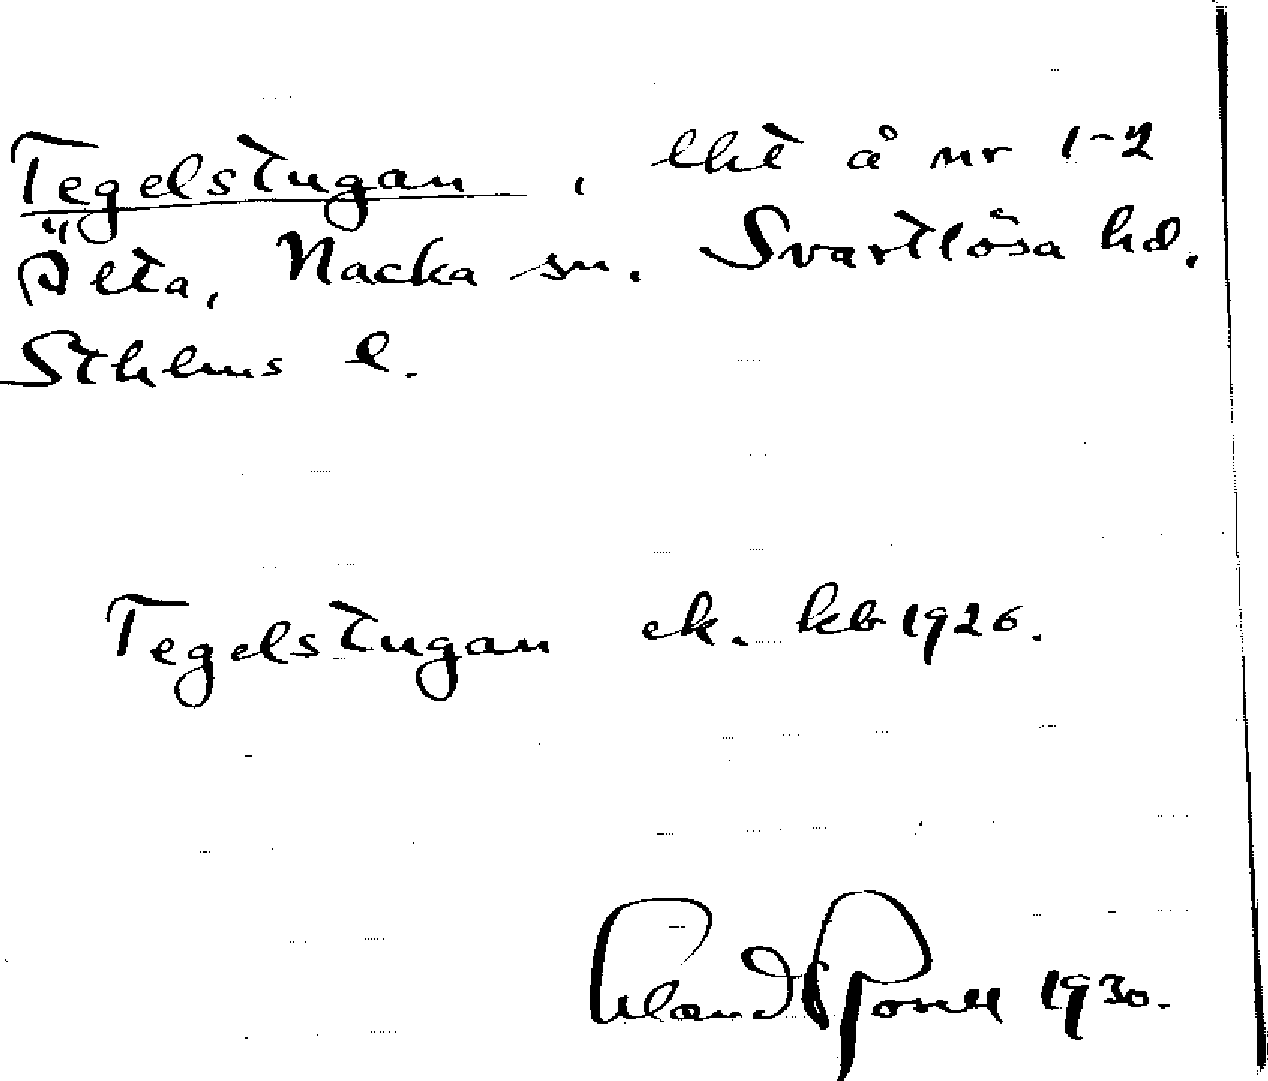 Tegelstugan, lht å nr 1-2
Älta, Nacka sn. Svartlösa hd.
Sthlms l.
Tegelstugan ek. kb 1926.
1930.